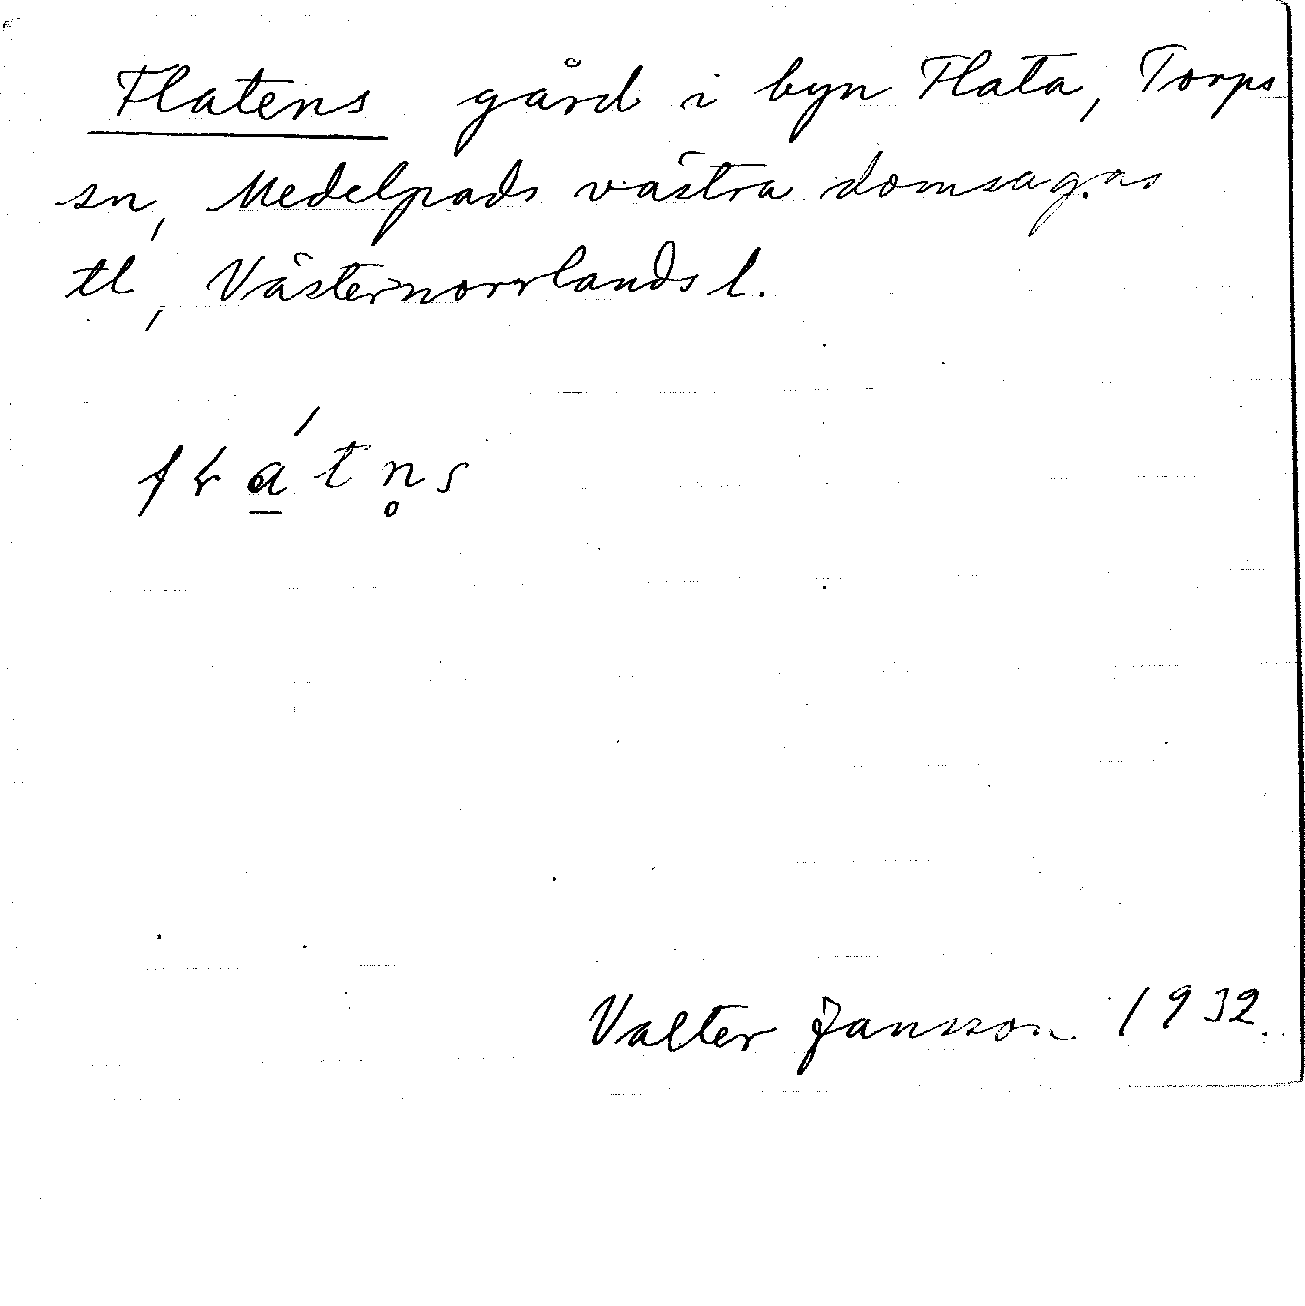 Flatens gård i byn Flata, Torps
sn, Medelpads västra domsagas
tl, Västernorrlands l.
Valter Jansson 1932.